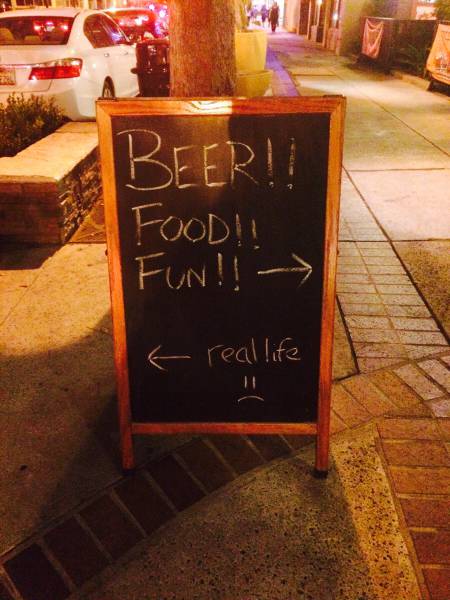 BEER!!
FOOD!!
FUN!! →
← real life